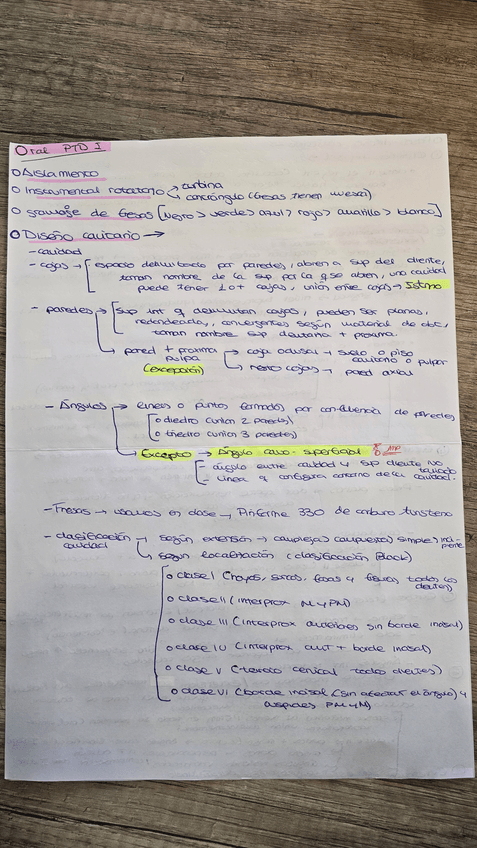 Oral PTD I
Aislamiento
Instrumental rotatorio → turbina
contraángulo (fresas tienen muesca)
gramaje de fresas [negro > verde > azul > rojo > amarillo > blanco]
Diseño cavitario →
- cavidad
- cajas → espacio delimitado por paredes, abren a sup del diente,
toman nombre de la sup por la q se abren, una cavidad
puede tener 1 o + cajas, unión entre cajas → Istmo
- paredes → sup int q delimitan cajas, pueden ser planas,
redondeadas, convergentes según material de obt,
toman nombre sup dentaria + proxima.
pared + proxima pulpa → caja oclusal → suelo o piso cavitario o pulpar
(excepción) → resto cajas → pared axial
- Ángulos → líneas o puntos formados por confluencia de paredes
diedro (unión 2 paredes)
triedro (unión 3 paredes)
Excepto → Ángulo cavo-superficial
- ángulo entre cavidad y sup diente no tallado
- línea q configura contorno de la cavidad.
- Fresas → usamos en clase → Piriforme 330 de carburo tungsteno
- clasificación cavidad → según extensión → complejas, compuestas, simples
según localización (clasificación Black)
clase I (hoyos, surcos, fosas y fisuras todos los dientes)
clase II (interprox M y PM)
clase III (interprox anteriores sin borde incisal)
clase IV (interprox ant + borde incisal)
clase V (tercio cervical todos dientes)
clase VI (borde incisal (sin afectar el ángulo) y
cúspides PM y M)